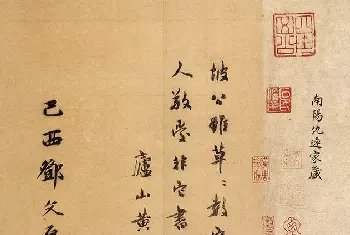 南陽仇遠家藏
坡公雖草〻數
人敬愛非它書
廬山黃
己酉鄧文